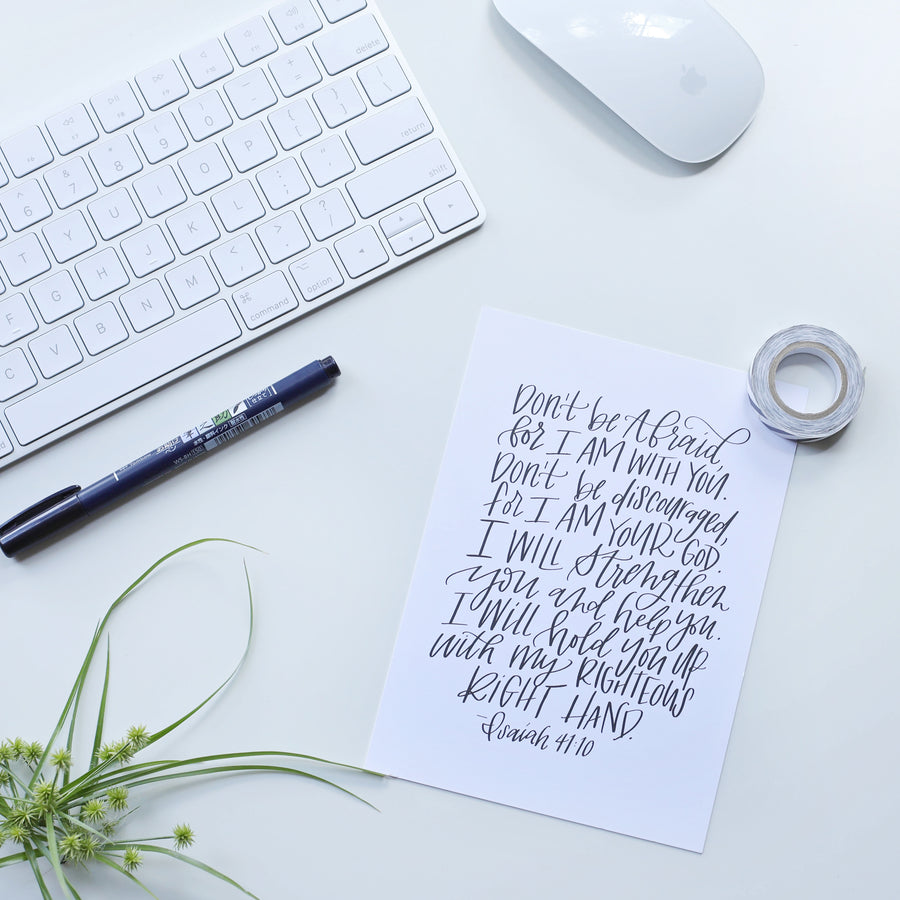 delete
return
shift
command
option
Don't be Afraid,
for I AM WITH YOU.
Don't be discouraged,
for I AM YOUR GOD.
I WILL strengthen
you and help you.
I Will hold you up
with my RIGHTEOUS
RIGHT HAND.
-Isaiah 41:10